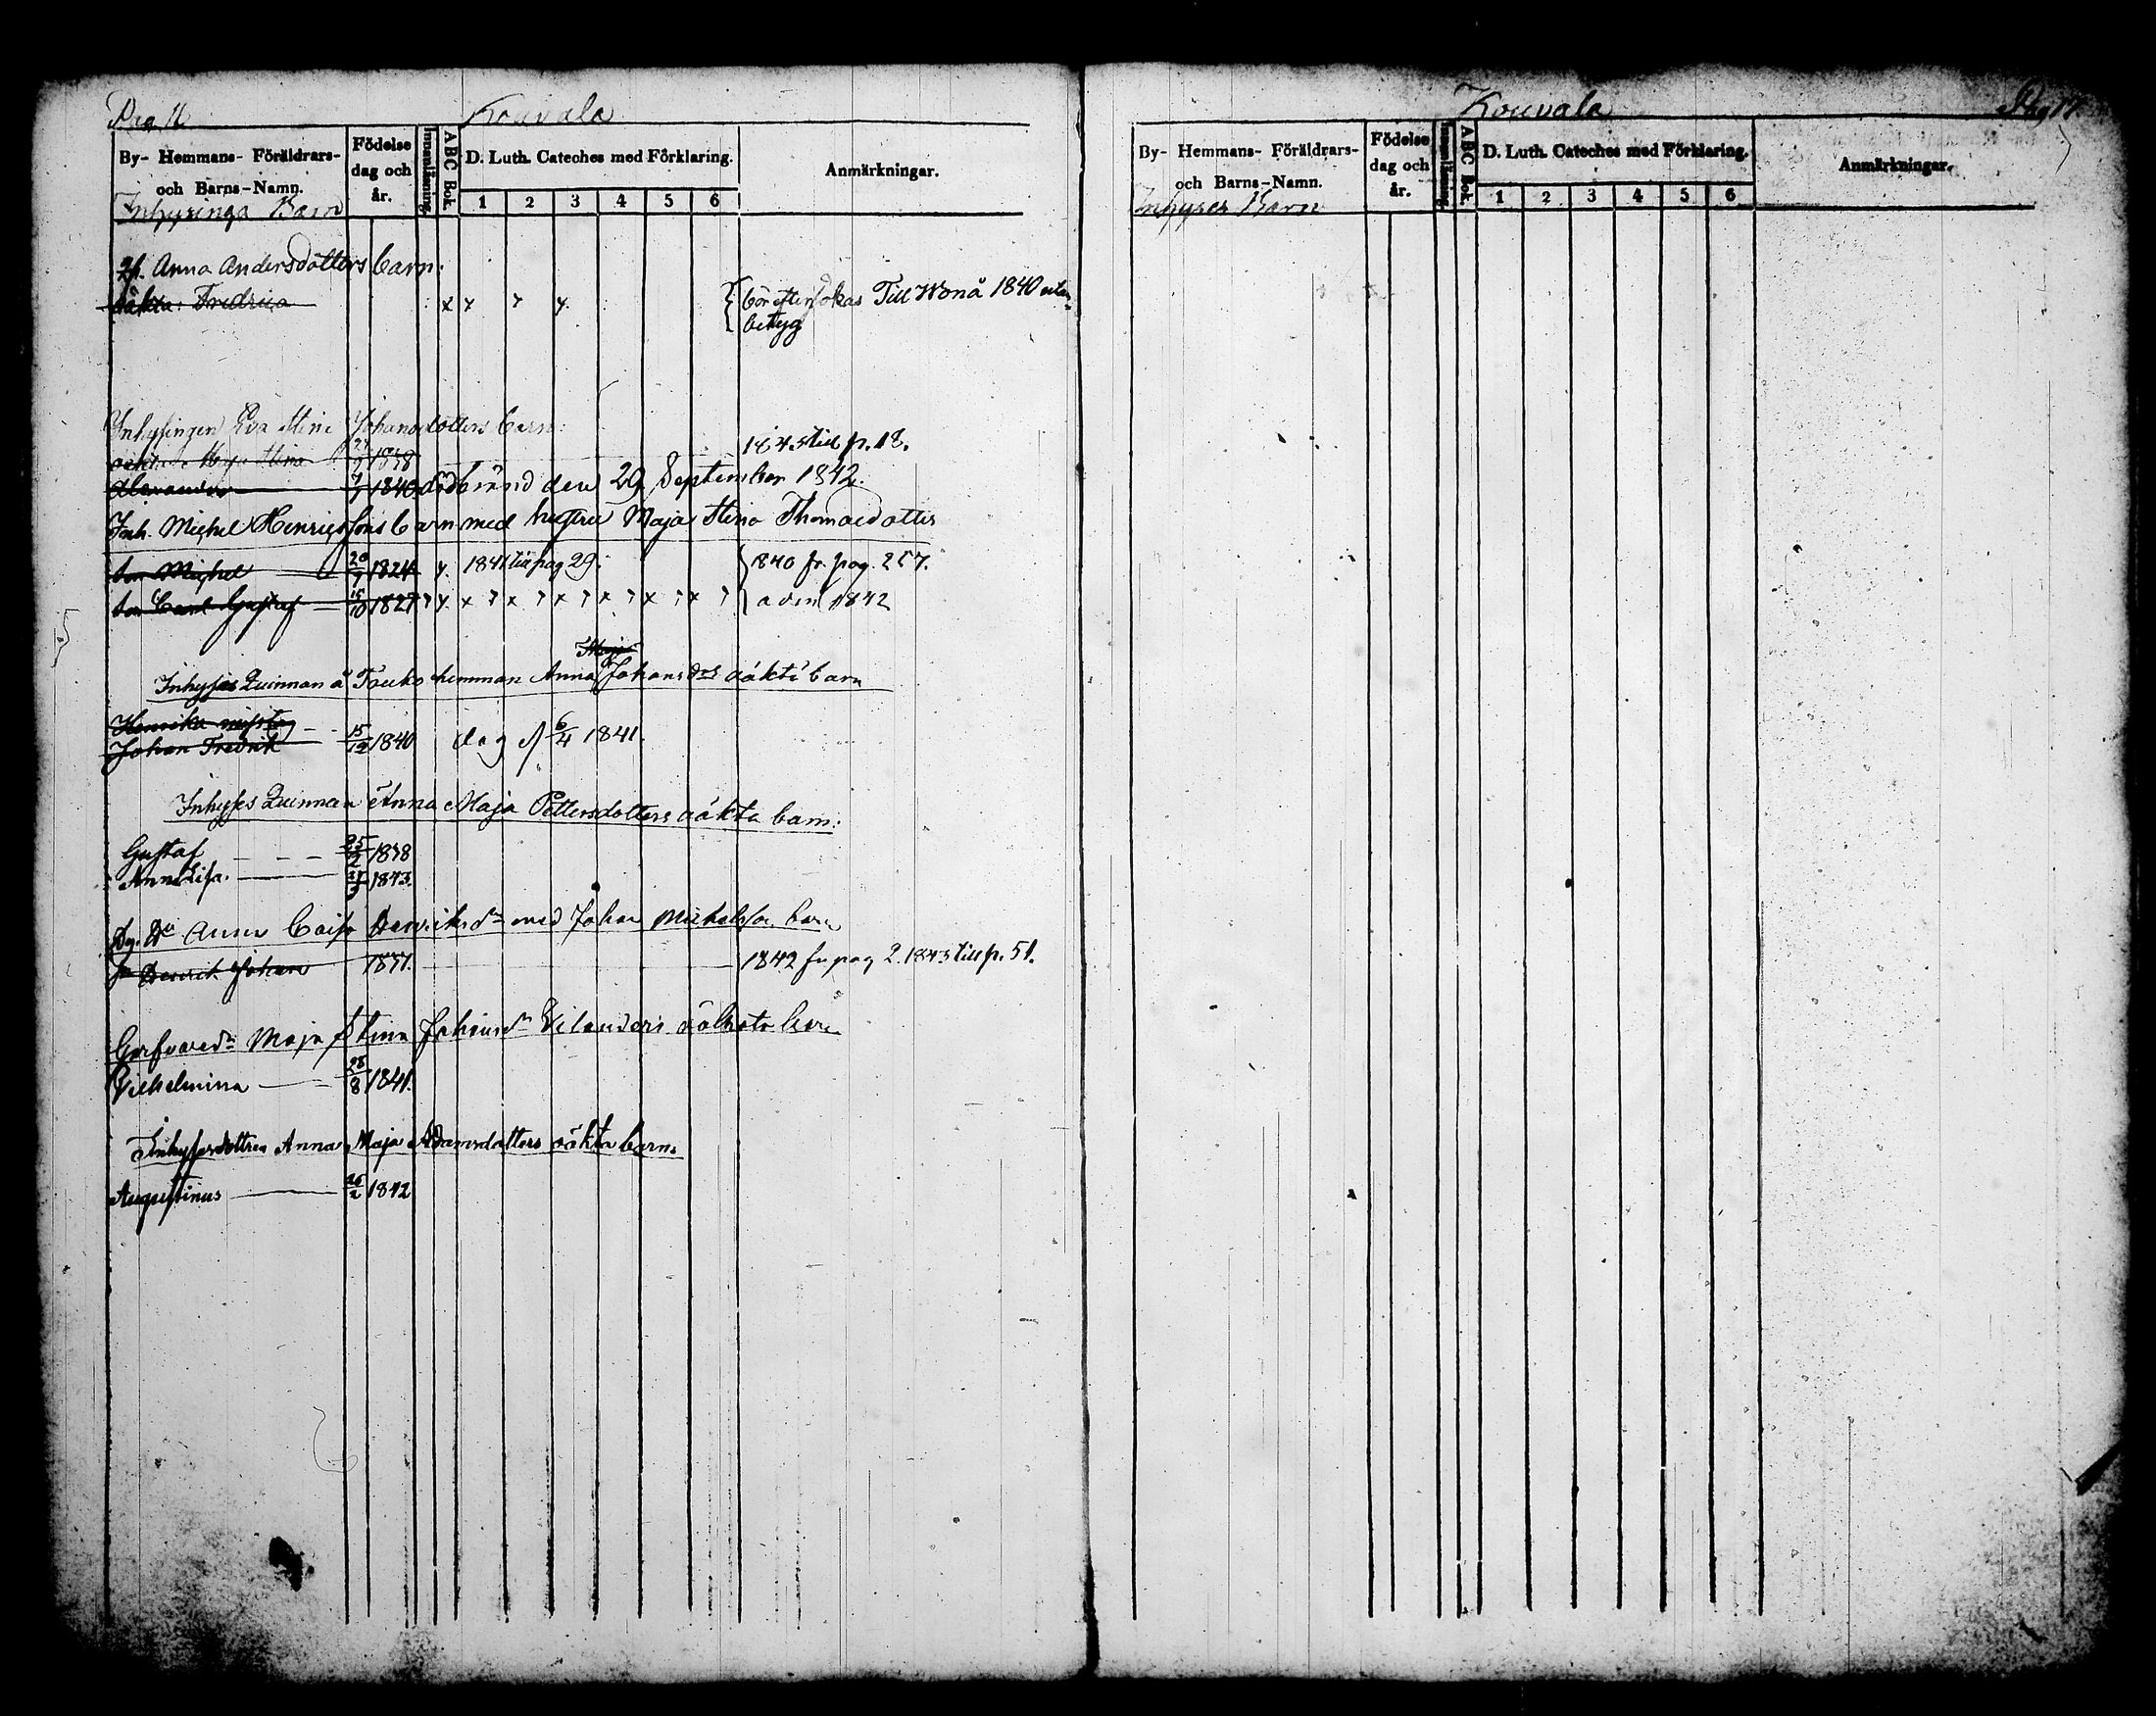 Kouvala
By- Hemmans- Föräldrars- och Barns-Namn.
Födelse dag och år.
Innanläsning.
ABC Bok.
D. Luth. Cateches med Förklaring.
1 2 3 4 5 6
Anmärkningar.
Inhysinga Barn
Anna Andersdotters barn:
oäkta: Fredrica x y y y. bör eftersökas Till Wonå 1840 utan
betyg
Inhysingen Eva Stina Johansdotters barn:
Maja Stina 1838 1845 till p. 18.
Alexander 1840 dödbränd den 29 September 1842.
Inh. Michel Henricssons barn med hustru Maja Stina Thomasdotter
son Michel 20/9 1824 y. 1841 till pag 29. 1840 fr. pag. 257.
son Carl Gustaf 15/10 1827 a den 1842
Inhyses Quinnan å Touko hemman Anna Johans drs oäkta barn
Henrika
Johan Fredrik 15/12 1840 dog d 6/4 1841.
Inhyses Quinnan Anna Maja Pettersdotters oäkta barn:
Gustaf 25/2 1838
Anna Lisa. 1843.
Anna Caisa Henriksdr med Johan Michelsson barn
Henrik Johan 1842 fr pag 2. 1843 till p. 51.
Maja Stina Johansdr oäkta barn
Vilhelmina 28/8 1841.
Inhysesdottren Anna Maja Adamsdotters oäkta barn.
Augustinus 26/2 1842
Kouvala
Pag 17.
By- Hemmans- Föräldrars- och Barns-Namn.
Födelse dag och år.
Innanläsning.
ABC Bok.
D. Luth. Cateches med Förklaring.
1 2 3 4 5 6
Anmärkningar.
Inhyses Barn